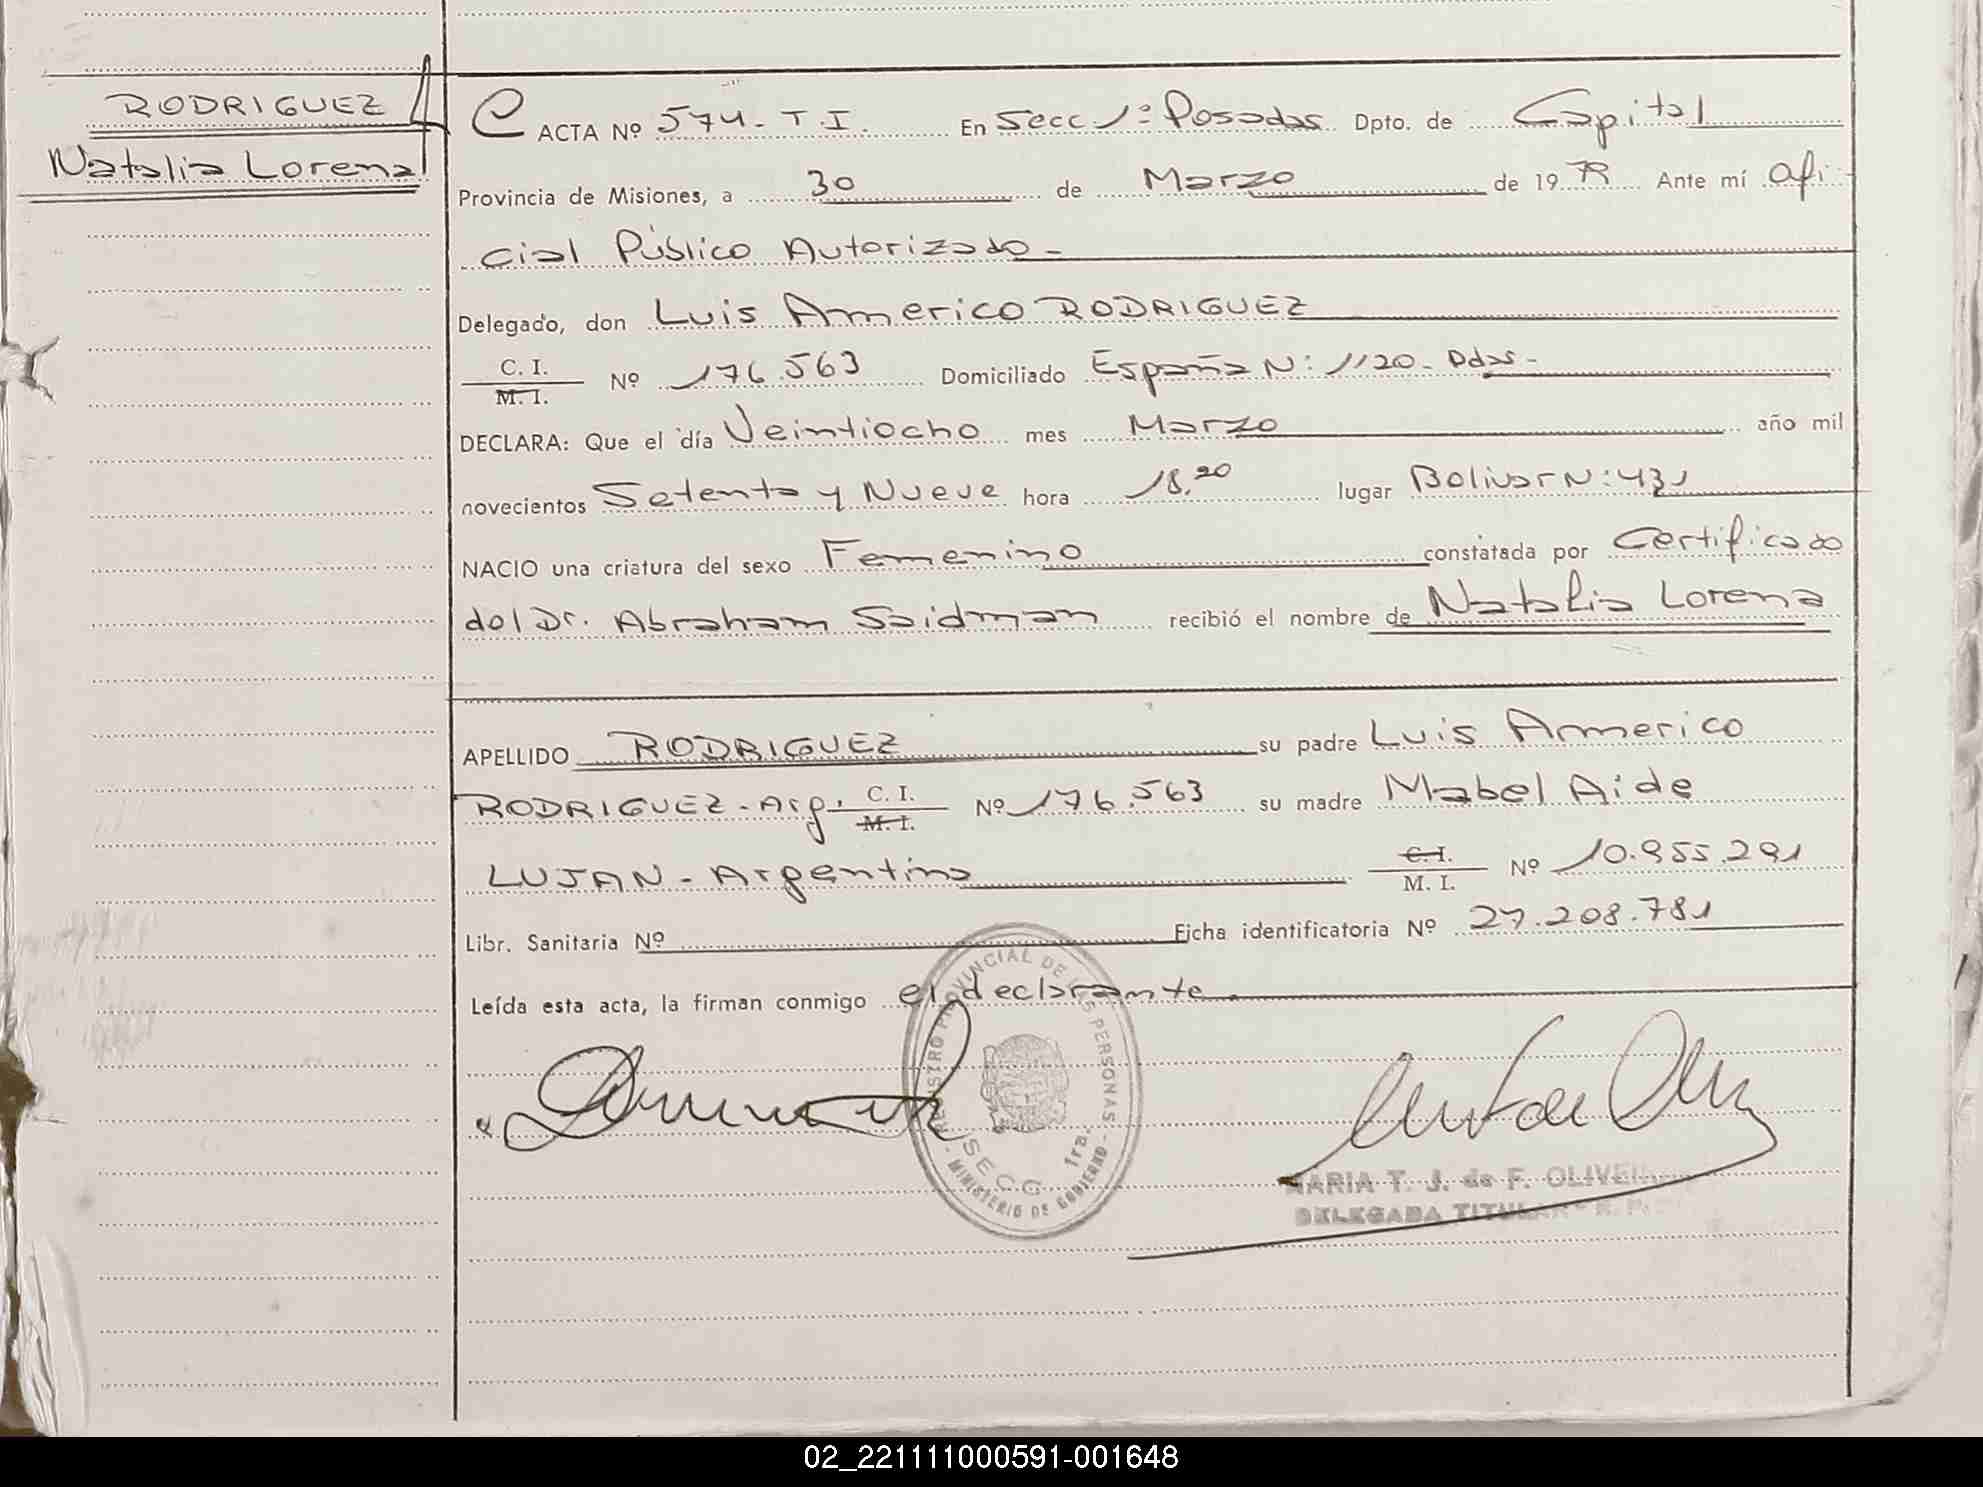 RODRIGUEZ
Natalia Lorena
ACTA Nº 574- T.I. En Secc 1ª Posadas Dpto. de Capital
Provincia de Misiones, a 30 de Marzo de 1979 Ante mí Ofi
cial Público Autorizado-
Delegado, don Luis Americo RODRIGUEZ
C. I.
M. I. Nº 176.563 Domiciliado España Nº 1120- Pdas-
DECLARA: Que el día Veintiocho mes Marzo año mil
novecientos Setenta y Nueve hora 18,20 lugar Bolivar Nº 431
NACIO una criatura del sexo Femenino constatada por Certificado
del Dr. Abraham Saidman recibió el nombre de Natalia Lorena
APELLIDO RODRIGUEZ su padre Luis Americo
RODRIGUEZ- Arg. C. I. M. I. Nº 176.563 su madre Mabel Aide
LUJAN- Argentina C. I. M. I. Nº 10.955.291
Libr. Sanitaria Nº Ficha identificatoria Nº 27.208.781
Leída esta acta, la firman conmigo el declarante.
REGISTRO PROVINCIAL DE LAS PERSONAS
SECC. 1ra.
MINISTERIO DE GOBIERNO
MARIA T. J. de F. OLIVEIRA
DELEGADA TITULAR
02_221111000591-001648